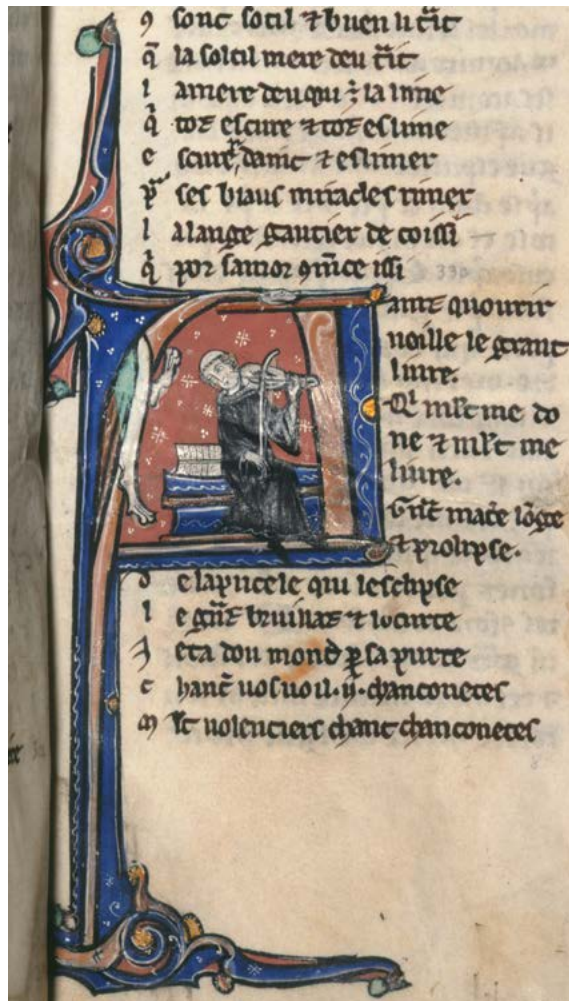 9 sont sotil & buen li c̃it
q̃ la soltil mere deu c̃it
l a mere deu qui ÷ la lune
q̃ tot escure & tot eslume
e scure, danit & eslumer
p̃ ses biaus miracles rimer
l alange gautier de coissi
q̃ por samor 9m̃ce issi 330
ainz quourir
uoille le grant
liure.
Q̃ ml't me do
ne & ml't me
liure.
G̃nt mat̃e lõge
et prolipse.
d e la pucele qui lesclipse
l e gñt bruillaz & locurte
J eta dou mond p sa purte
c hant̃ uos uoil .ii. chanconetes
M lt uolentiers chant chanconetes